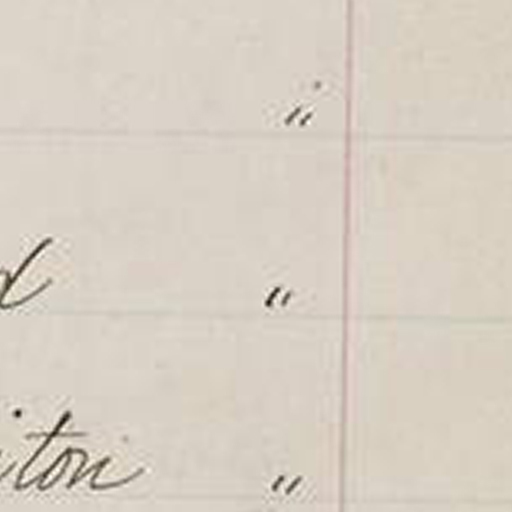 "
d "
iton "